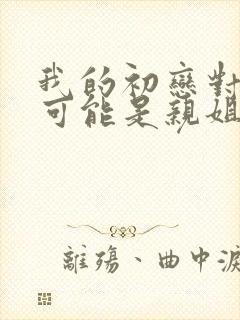 我的初戀對
可能是親姐
離殤、曲中淚